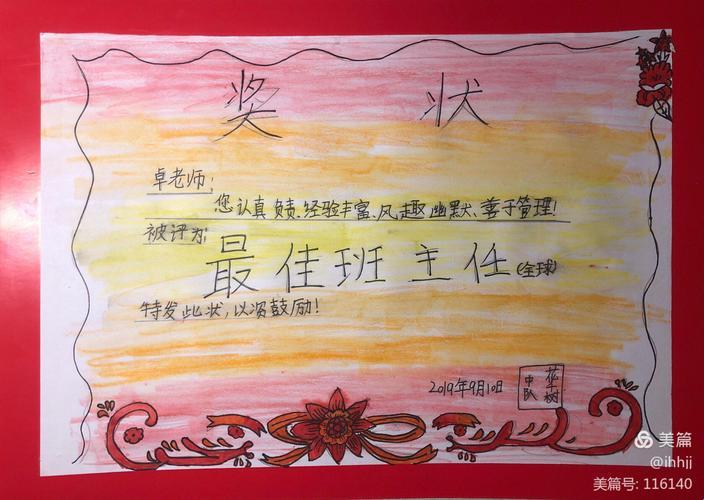 奖状
卓老师：
您认真负责、经验丰富、风趣幽默、善于管理！
被评为：
最佳班主任（全球）
特发此状，以资鼓励！
2019年9月10日
中队
美篇
@ihhjj
美篇号: 116140